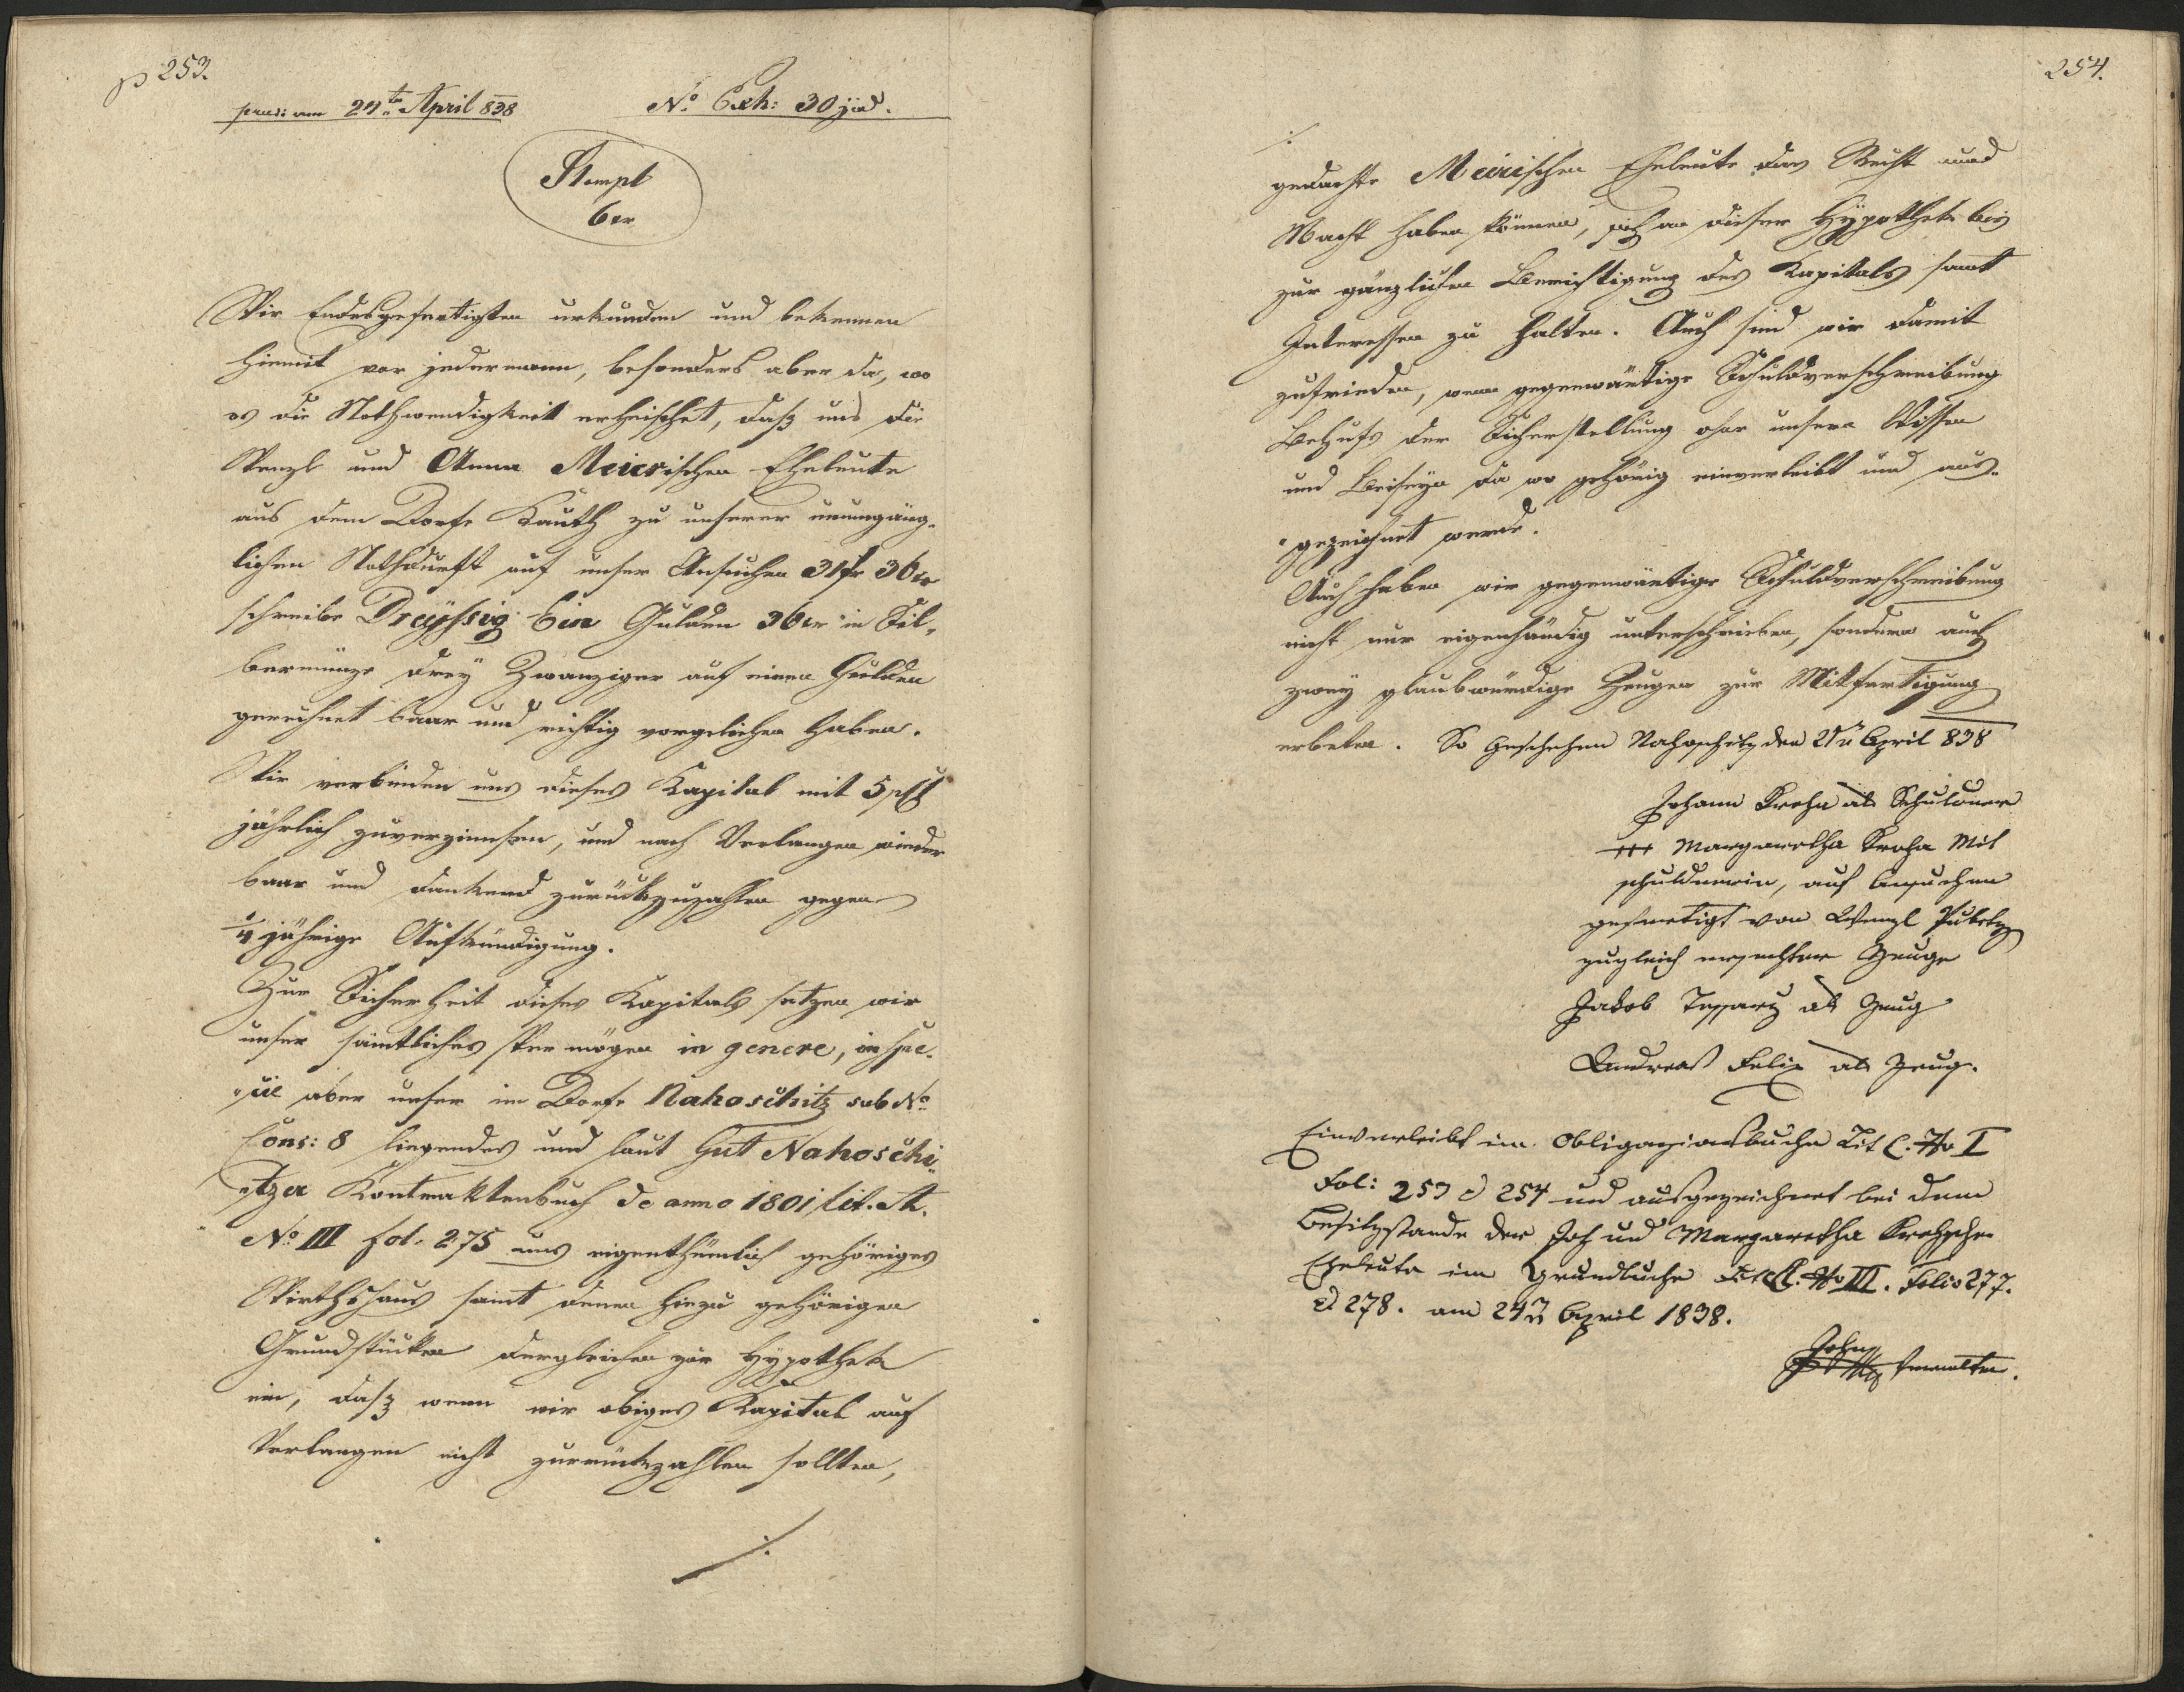 p 253.
praes: am 24ten April 838 No. Exh: 30 jud.
Stempl
6 xr
Wir Endesgefertigten urkunden und bekennen
hiemit vor jedermann, besonders aber da, wo
es die Nothwendigkeit erheischet, daß uns die
Wenzl und Anna Meierischen Eheleute
aus dem Dorfe Kauth zu unserer unumgäng-
lichen Nothdurft auf unser Ansuchen 31 fr 36 xr
schreibe Dreyßig Ein Gulden 36 xr in Sil-
bermünze drey Zwanziger auf einen Gulden
gerechnet baar und richtig vorgeliehen haben.
Wir verbinden uns dieses Kapital mit 5 pCt
jährlich zuverzinnsen, und nach Verlangen wieder
baar und dankend zurückzuzahlen gegen
1/4 jährige Aufkündigung.
Zur Sicherheit dieses Kapitals setzen wir
unser sämtliches Vermögen in genere, in spe-
"cie aber unser im Dorfe Nahoschitz sub No.
Cons: 8 liegendes und laut Gut Nahoschi-
"tzer Kontraktenbuch de anno 1801 lit. A.
No III fol. 275 uns eigenthümlich gehöriges
Wirthshaus samt denen hiezu gehörigen
Grundstücken dergleichen zur Hÿpothek
ein, daß wenn wir obiges Kapital auf
Verlangen nicht zurückzahlen sollten,
./.
254.
./.
gedachte Meierischen Eheleute das Recht und
Macht haben können, sich an dieser Hÿpothek bis
zur gänzlichen Berichtigung des Kapitals samt
Interessen zu halten. Auch sind wir damit
zufrieden, wenn gegenwärtige Schuldverschreibung
Behufs der Sicherstellung ohne unsern Wissen
und Beiseyn da wo gehörig einverleibt und aus-
"gezeichnet werde.
Auch haben wir gegenwärtige Schuldverschreibung
nicht nur eigenhändig unterschrieben, sondern auch
zwey glaubwürdige Zeugen zur Mitfertigung
erbeten. So geschehen Nahoschitz den 21n April 838
Johann Kroha als Schuldner
+++ Margaretha Kroha Mit
schuldnerin, auf Ansuchen
gefertigt von Wenzl
zugleich ersuchter Zeuge
Jakob als Zeug
Andreas Felix als Zeug.
Einverleibt im Obligazionsbuche Lit C. No I
Fol: 253 & 254 und ausgezeichnet bei dem
Besitzstande der Joh und Margaretha Krohschen
Eheleute im Grundbuche Lit A. No III. Folio 277.
& 278. am 24n April 1838.
Verwalter.